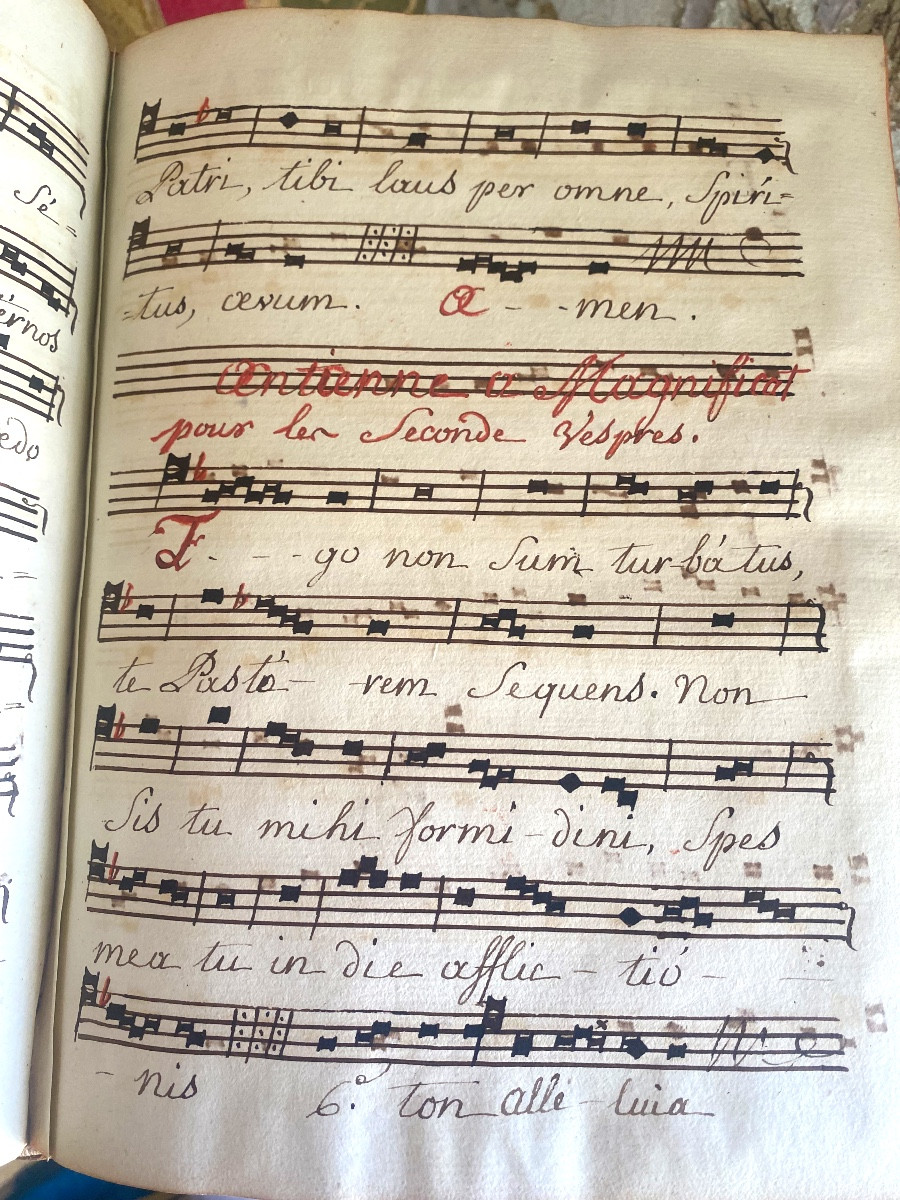 Sé-
Patri, tibi laus per omne, Spíri=
=tus, ævum. A - - men.
ternos
Antienne a Magnificat
pour les Seconde Vêspres.
edo
E - - - go non Sum turbátus,
te Pastó- -rem Sequens. Non
Sis tu mihi formi-dini, Spes
mea tu in die afflic-tió-
- nis 6.° ton alle-luia